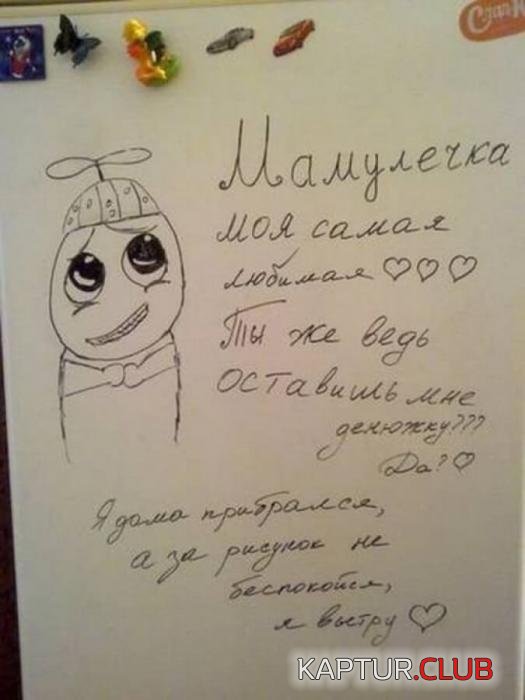 Мамулечка
моя самая
любимая ♡♡♡
Ты же ведь
оставишь мне
денюжку???
Да? ♡
Я дома прибрался,
а за рисунок не
беспокойся,
я вытру ♡
KAPTUR.CLUB